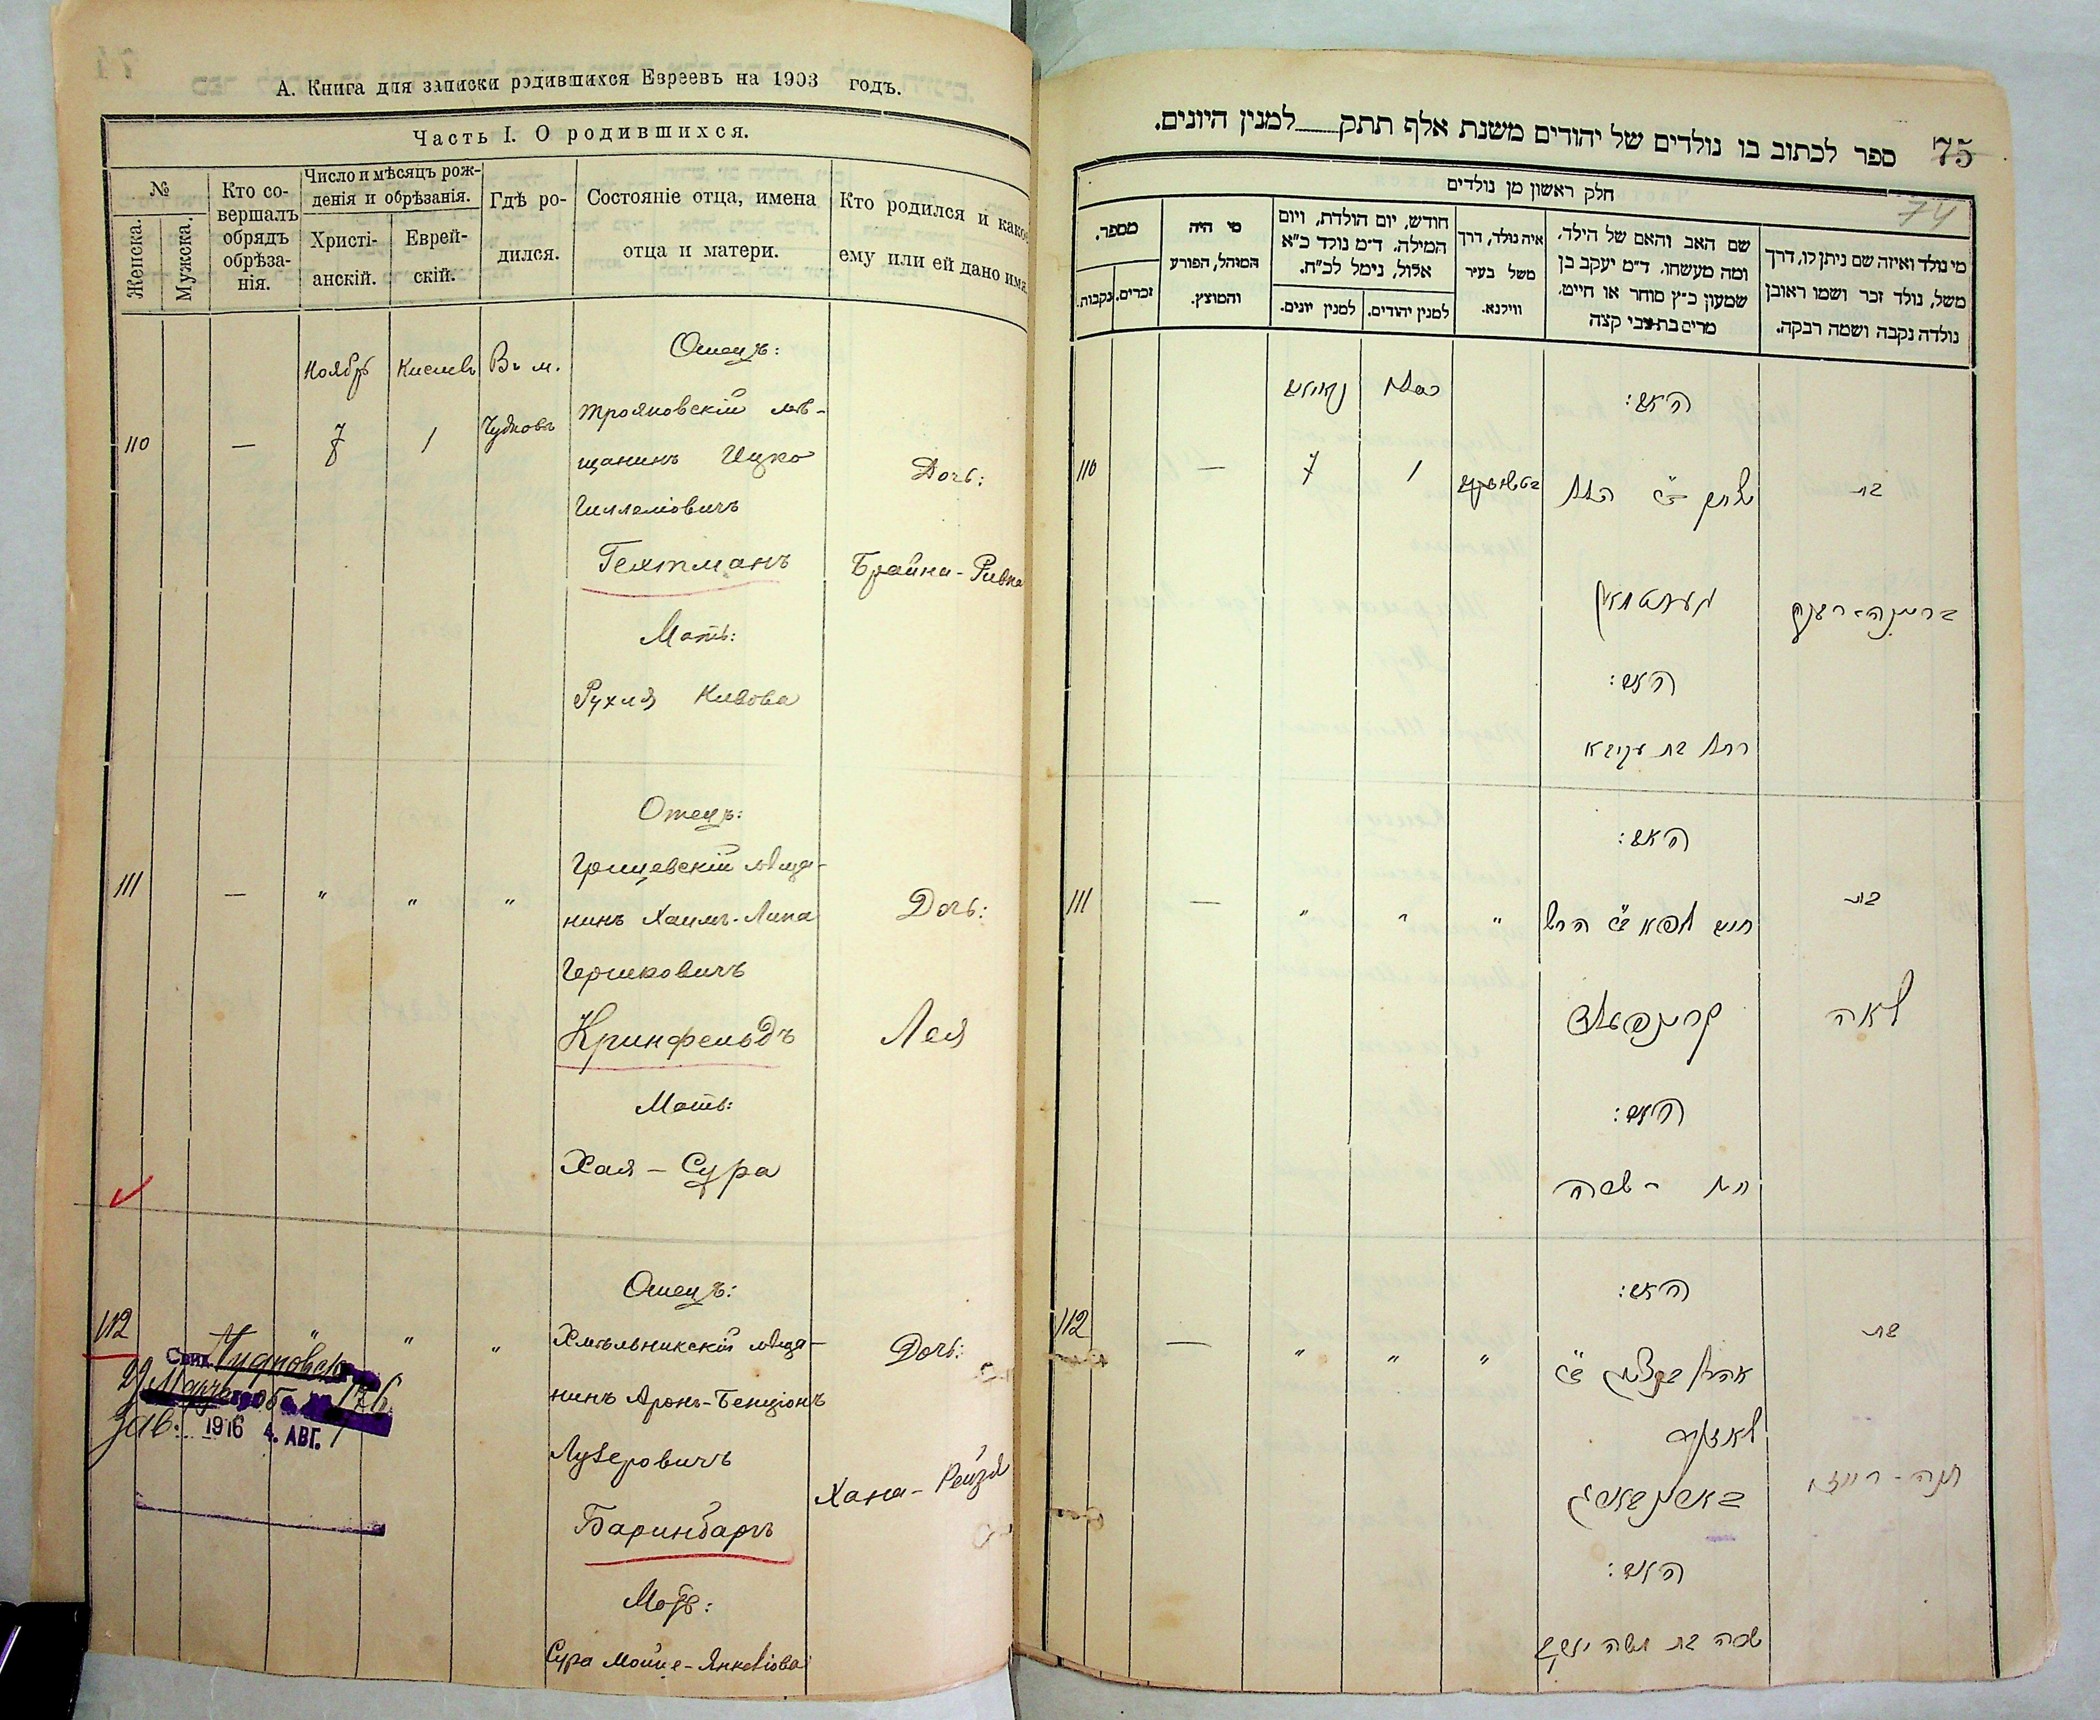 А. Книга для записки родившихся Евреевъ на 1903 годъ.
Часть I. О родившихся.
№
Женска.
Мужска.
Кто совершалъ обрядъ обрѣзанія.
Число и мѣсяцъ рожденія и обрѣзанія.
Христіанскій.
Еврейскій.
Гдѣ родился.
Состояніе отца, имена отца и матери.
Кто родился и како
ему или ей дано имя.
110
—
Ноябрь
7
Кислевъ
1
Въ м.
Чудновъ
Отецъ:
Трояновскій мѣ-
щанинъ Ицко
Гиллеліовичъ
Гехтманъ
Мать:
Рухля Кивова
Дочь:
Брайна-Ривка
111
—
"
"
"
Отецъ:
Грицевскій мѣща-
нинъ Хаимъ-Липа
Гершковичъ
Кринфельдъ
Мать:
Хая - Сура
Дочь:
Лея
112
"
"
"
Отецъ:
Хмѣльникскій мѣща-
нинъ Аронъ-Бенціонъ
Лузеровичъ
Баринбаргъ
Мать:
Сура Мошко-Янкеліова
Дочь:
Хана-Рейзя
1916 4. АВГ.
75
74
ספר לכתוב בו נולדים של יהודים משנת אלף תתק למנין היונים.
חלק ראשון מן נולדים
מספר.
נקבות.
זכרים.
מי היה
המוהל, הפורע
והמוצץ.
חודש, יום הולדת, ויום
המילה. ד״מ נולד כ״א
אלול, נימל לכ״ח.
למנין יונים.
למנין יהודים.
איה נולד, דרך
משל בעיר
ווילנא.
שם האב והאם של הילד.
ומה מעשהו. ד״מ יעקב בן
שמעון כ״ץ סוחר או חייט.
מרים בת צבי קצה
מי נולד ואיזה שם ניתן לו, דרך
משל, נולד זכר ושמו ראובן
נולדה נקבה ושמה רבקה.
110
—
7
1
האב:
יצחק ב״ר הלל
העכטמאן
האם:
רחל בת עקיבא
בת
בריינה-רבקה
111
—
"
"
"
האב:
חיים ליפא ב״ר הרש
קרינפעלד
האם:
חיה - שרה
בת
לאה
112
—
"
"
"
האב:
אהרן בנציון ב״ר
האם:
שרה בת משה יעקב
בת
חנה-רייזא